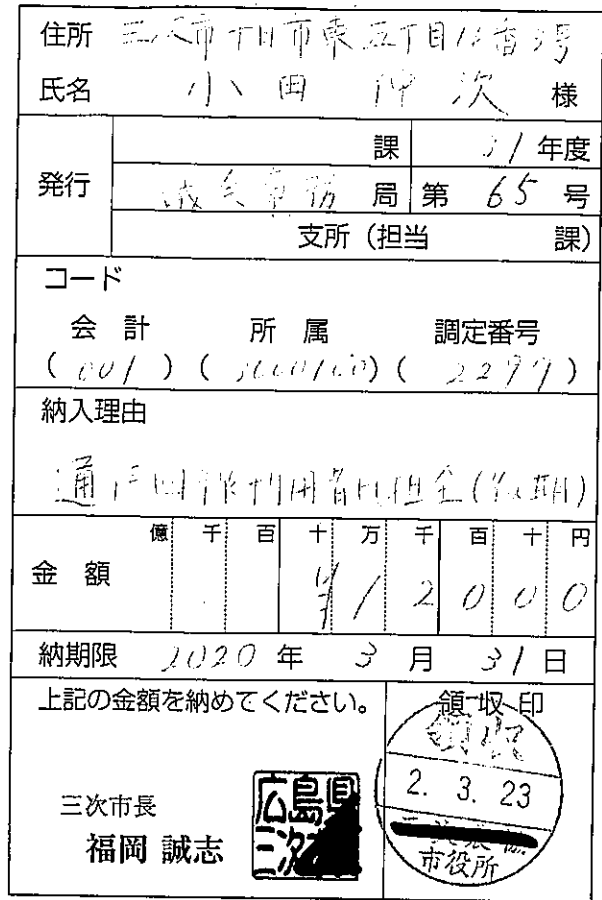 住所 三次市十日市東五丁目13番3号
氏名 小田 伸次 様
発行
課 31年度
議会事務局 第 65 号
支所(担当 課)
コード
会計 所属 調定番号
(001) ( ) (2299)
納入理由
通信回線利用者負担金(後期)
億 千 百 十 万 千 百 十 円
金額 ¥12000
納期限 2020年 3月 31日
上記の金額を納めてください。
三次市長
福岡 誠志
広島県
三次
領収印
領収
2. 3. 23
市役所